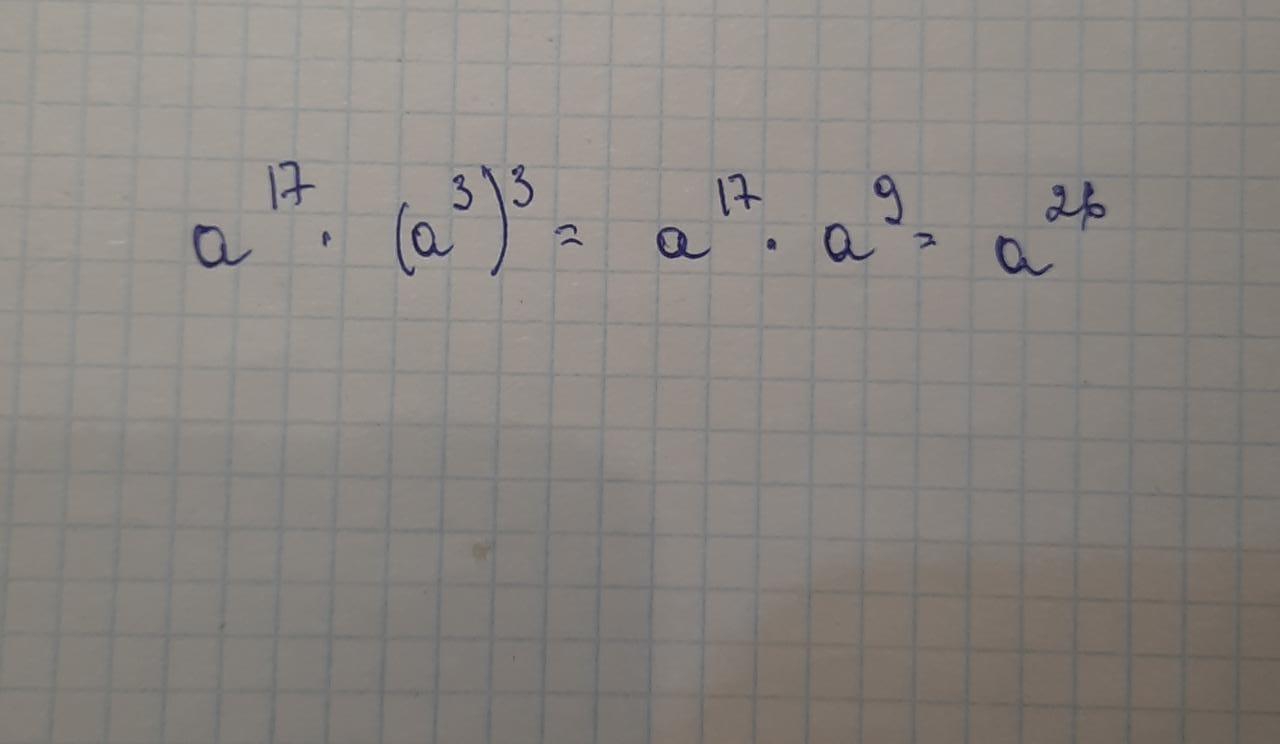 a¹⁷ · (a³)³ = a¹⁷ · a⁹ = a²⁶